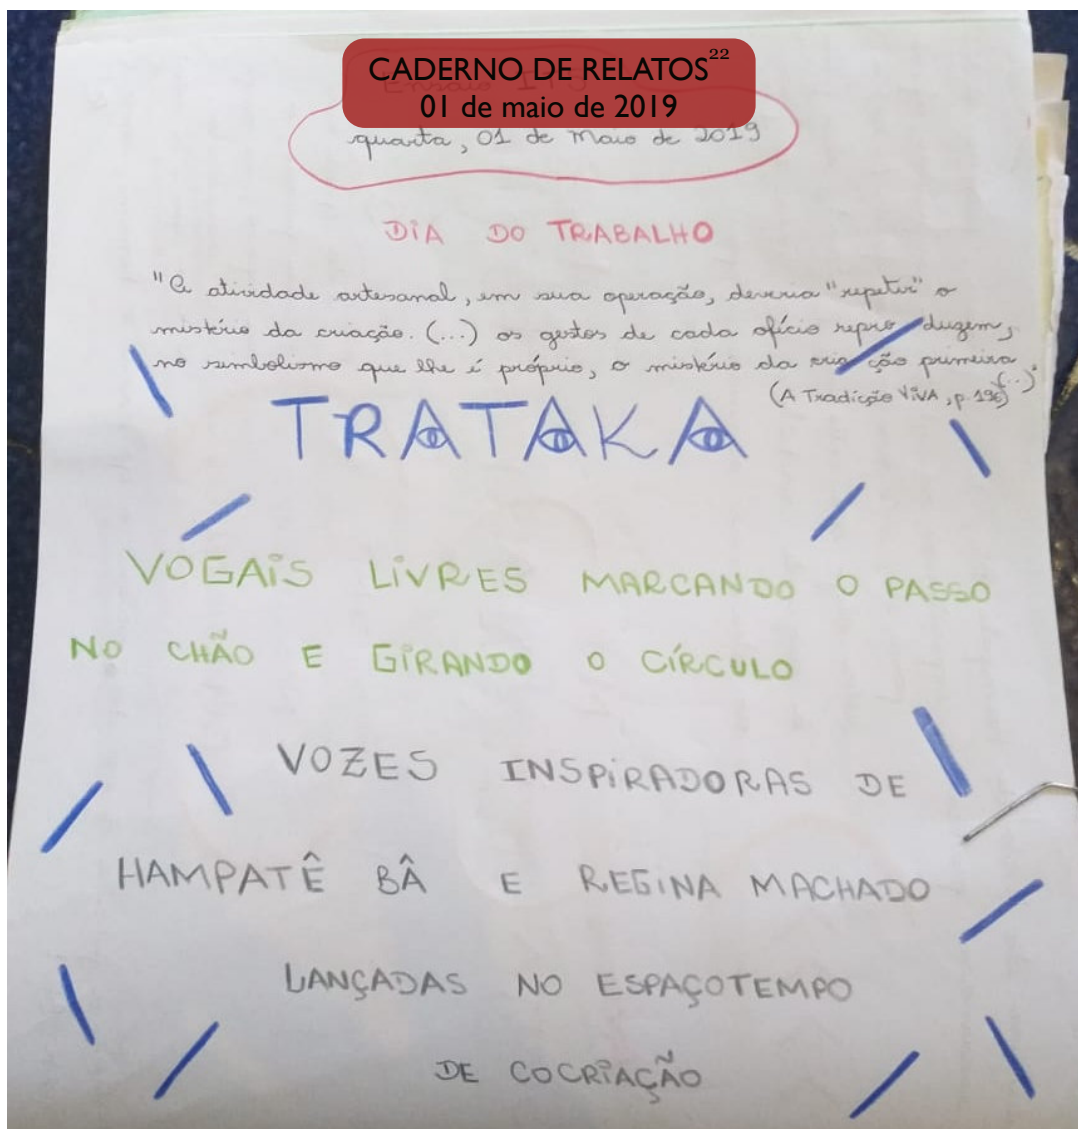 CADERNO DE RELATOS²²
01 de maio de 2019
Ensaio
quarta, 01 de Maio de 2019
DIA DO TRABALHO
"A atividade artesanal, em sua operação, deveria "repetir" o
mistério da criação. (...) os gestos de cada ofício repro duzem,
no simbolismo que lhe é próprio, o mistério da cria ção primeira
(...)"
(A Tradição VIVA, p. 196)
TRATAKA
VOGAIS LIVRES MARCANDO O PASSO
NO CHÃO E GIRANDO O CÍRCULO
VOZES INSPIRADORAS DE
HAMPATÊ BÂ E REGINA MACHADO
LANÇADAS NO ESPAÇOTEMPO
DE COCRIAÇÃO